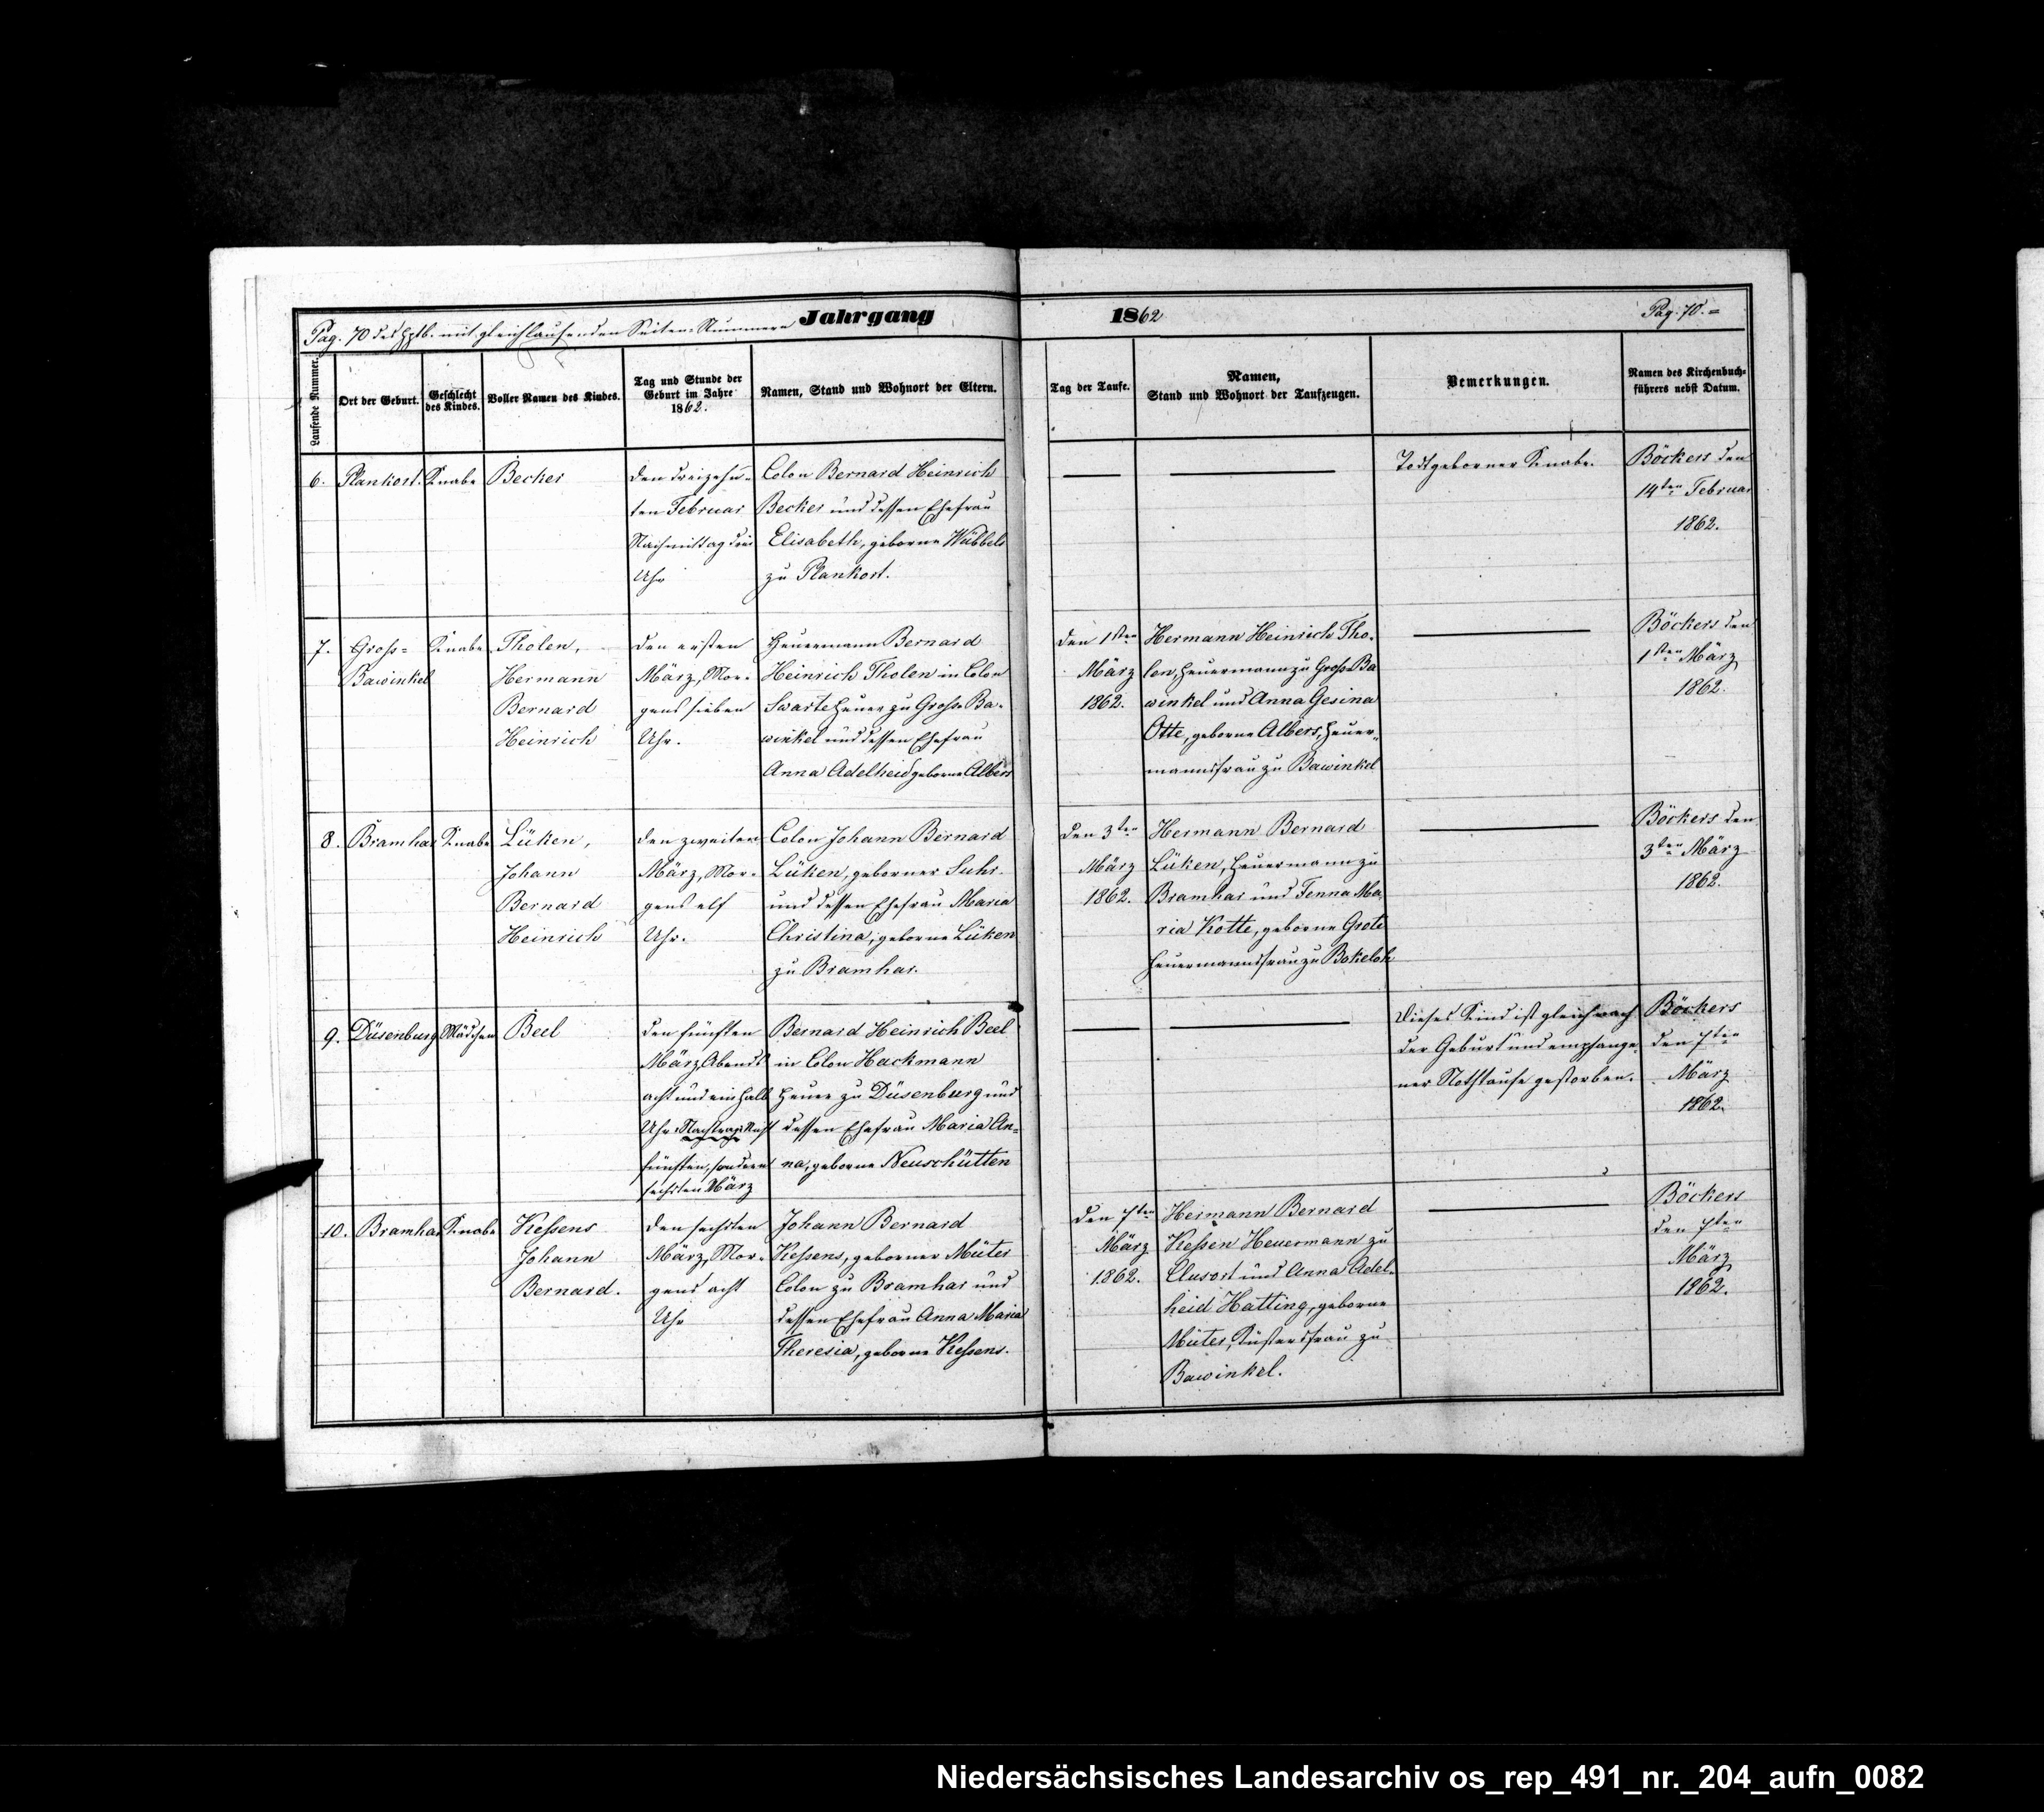 Jahrgang 1862
Pag. 70 des Hptb. mit gleichlaufenden Seiten-Nummern
Pag. 70.=
Laufende Nummer.
Ort der Geburt.
Geschlecht
des Kindes.
Voller Namen des Kindes.
Tag und Stunde der
Geburt im Jahre
1862.
Namen, Stand und Wohnort der Eltern.
Tag der Taufe.
Namen,
Stand und Wohnort der Taufzeugen.
Bemerkungen.
Namen des Kirchenbuch-
führers nebst Datum.
6.
Plankort.
Knabe
Becker
den dreizehn-
ten Februar
Nachmittag drei
Uhr
Colon Bernard Heinrich
Becker und dessen Ehefrau
Elisabeth, geborne Wübbels
zu Plankort.
Todtgeborner Knabe.
Böckers den
14ten Februar
1862.
7.
Gross-
Bawinkel
Knabe
Tholen,
Hermann
Bernard
Heinrich
den ersten
März, Mor-
gens sieben
Uhr.
Heuermann Bernard
Heinrich Tholen in Colon
Swarte Heuer zu Gross Ba-
winkel und dessen Ehefrau
Anna Adelheid geborne Albers
den 1sten
März
1862.
Hermann Heinrich Tho-
len, Heuermann zu Gross Ba
winkel und Anna Gesina
Otte, geborne Albers, Heuer-
mannsfrau zu Bawinkel
Böckers den
1sten März
1862.
8.
Bramhar
Knabe
Lüken,
Johann
Bernard
Heinrich
den zweiten
März, Mor-
gens elf
Uhr.
Colon Johann Bernard
Lüken, geborner Suhr
und dessen Ehefrau Maria
Christina, geborne Lüken
zu Bramhar.
den 3ten
März
1862.
Hermann Bernard
Lüken, Heuermann zu
Bramhar und Fenna Ma-
ria Kotte, geborne Grote
Heuermannsfrau zu Bokeloh
Böckers den
3ten März
1862.
9.
Düsenburg
Mädchen
Beel
den fünften
März, Abends
acht und ein halb
Uhr. Nachtrag: Nicht
fünften, sondern
sechsten März
Bernard Heinrich Beel
in Colon Hackmann
Heuer zu Düsenburg und
dessen Ehefrau Maria An-
na, geborne Neuschütten
Dieses Kind ist gleich nach
der Geburt und empfange-
ner Nothtaufe gestorben.
Böckers
den 7ten
März
1862.
10.
Bramhar
Knabe
Kessens
Johann
Bernard.
den sechsten
März, Mor-
gens acht
Uhr
Johann Bernard
Kessens, geborner Müter
Colon zu Bramhar und
dessen Ehefrau Anna Maria
Theresia, geborne Kessens.
den 7ten
März
1862.
Hermann Bernard
Kessen Heuermann zu
Clusort und Anna Adel-
heid Hatting, geborne
Müter, Küstersfrau zu
Bawinkel.
Böckers
den 7ten
März
1862.
Niedersächsisches Landesarchiv os_rep_491_nr._204_aufn_0082